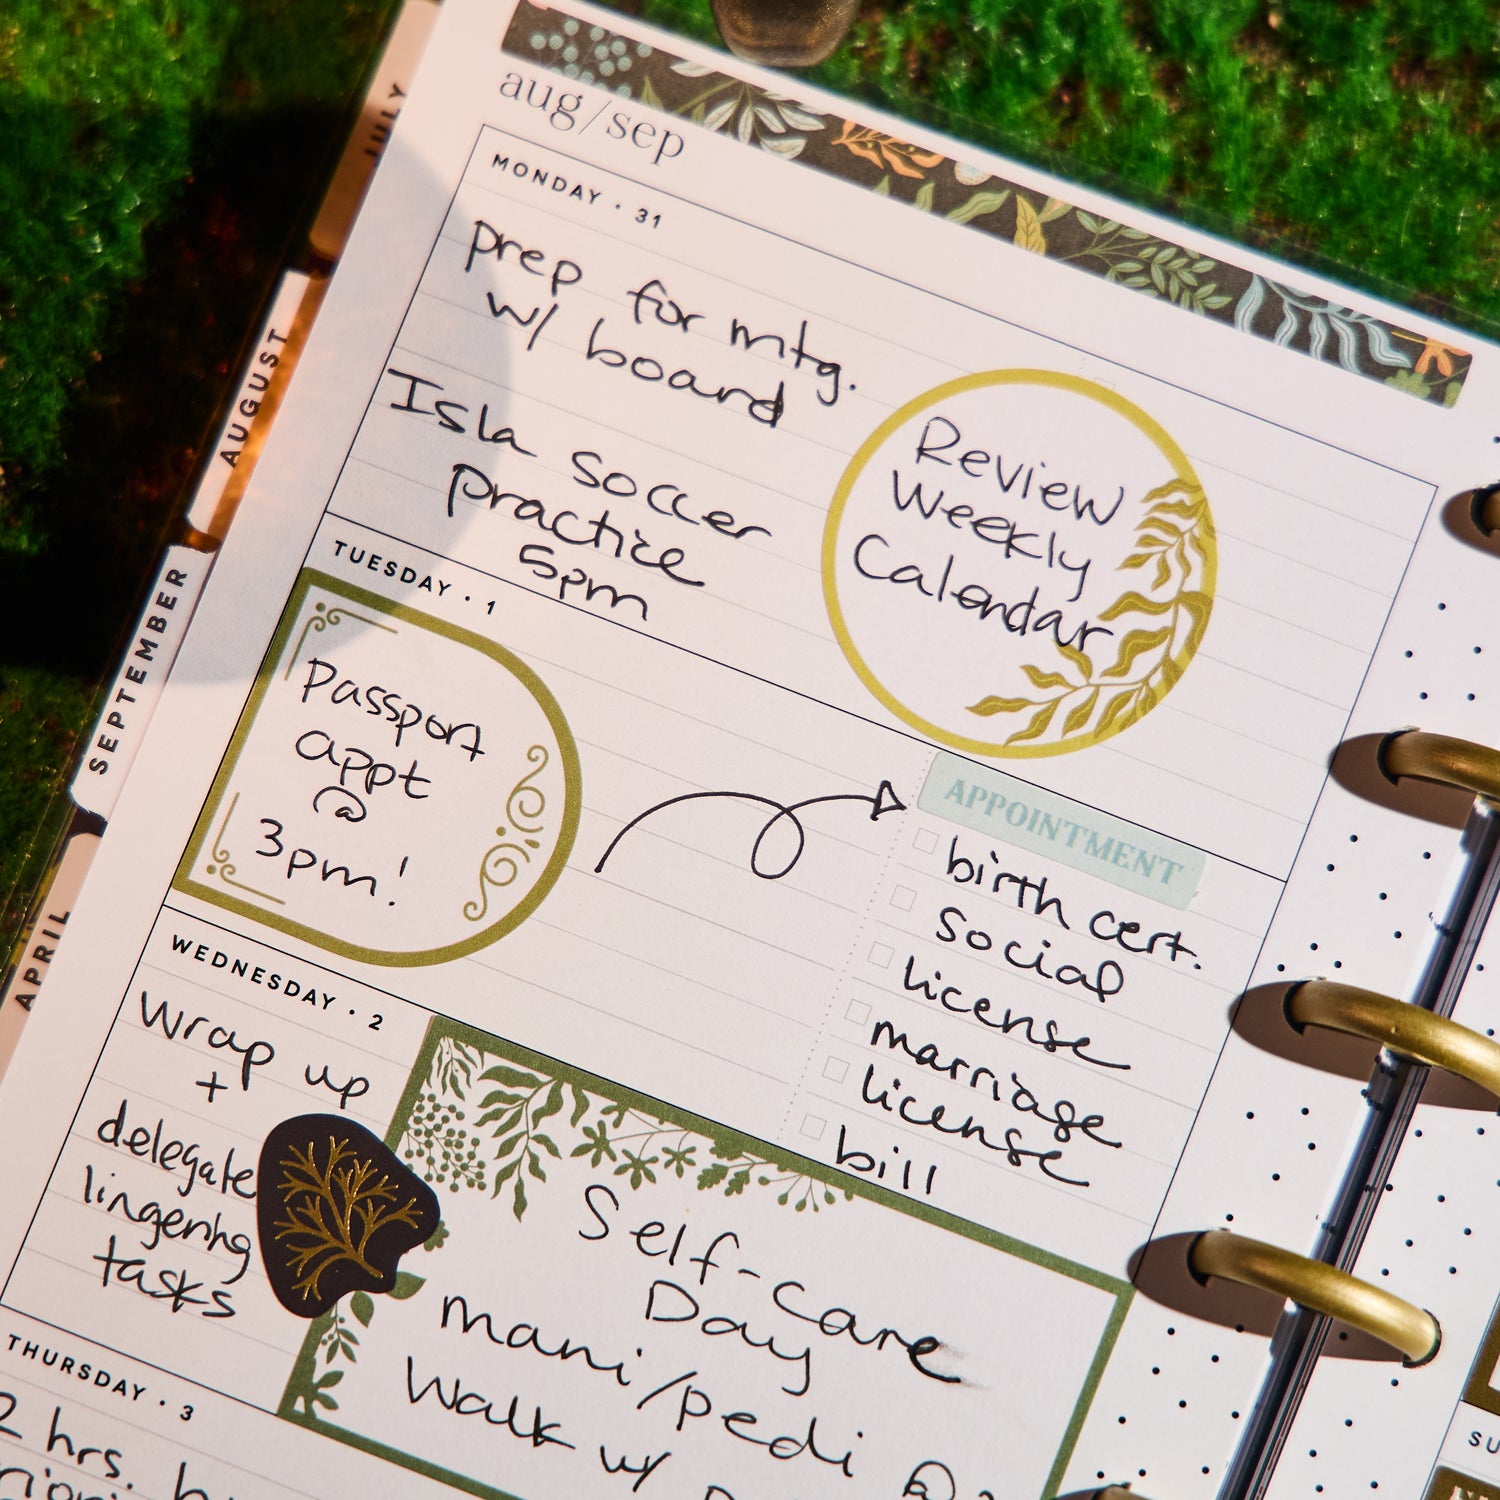 aug/sep
MONDAY • 31
prep for mtg.
w/ board
Isla soccer
practice
5pm
Review
Weekly
Calendar
TUESDAY • 1
Passport
appt
@
3pm!
APPOINTMENT
birth cert.
Social
license
marriage
license
bill
WEDNESDAY • 2
Wrap up
+
delegate
lingering
tasks
Self-care
Day
mani/pedi @
Walk w/
THURSDAY • 3
2 hrs.
JULY
AUGUST
SEPTEMBER
APRIL
SU